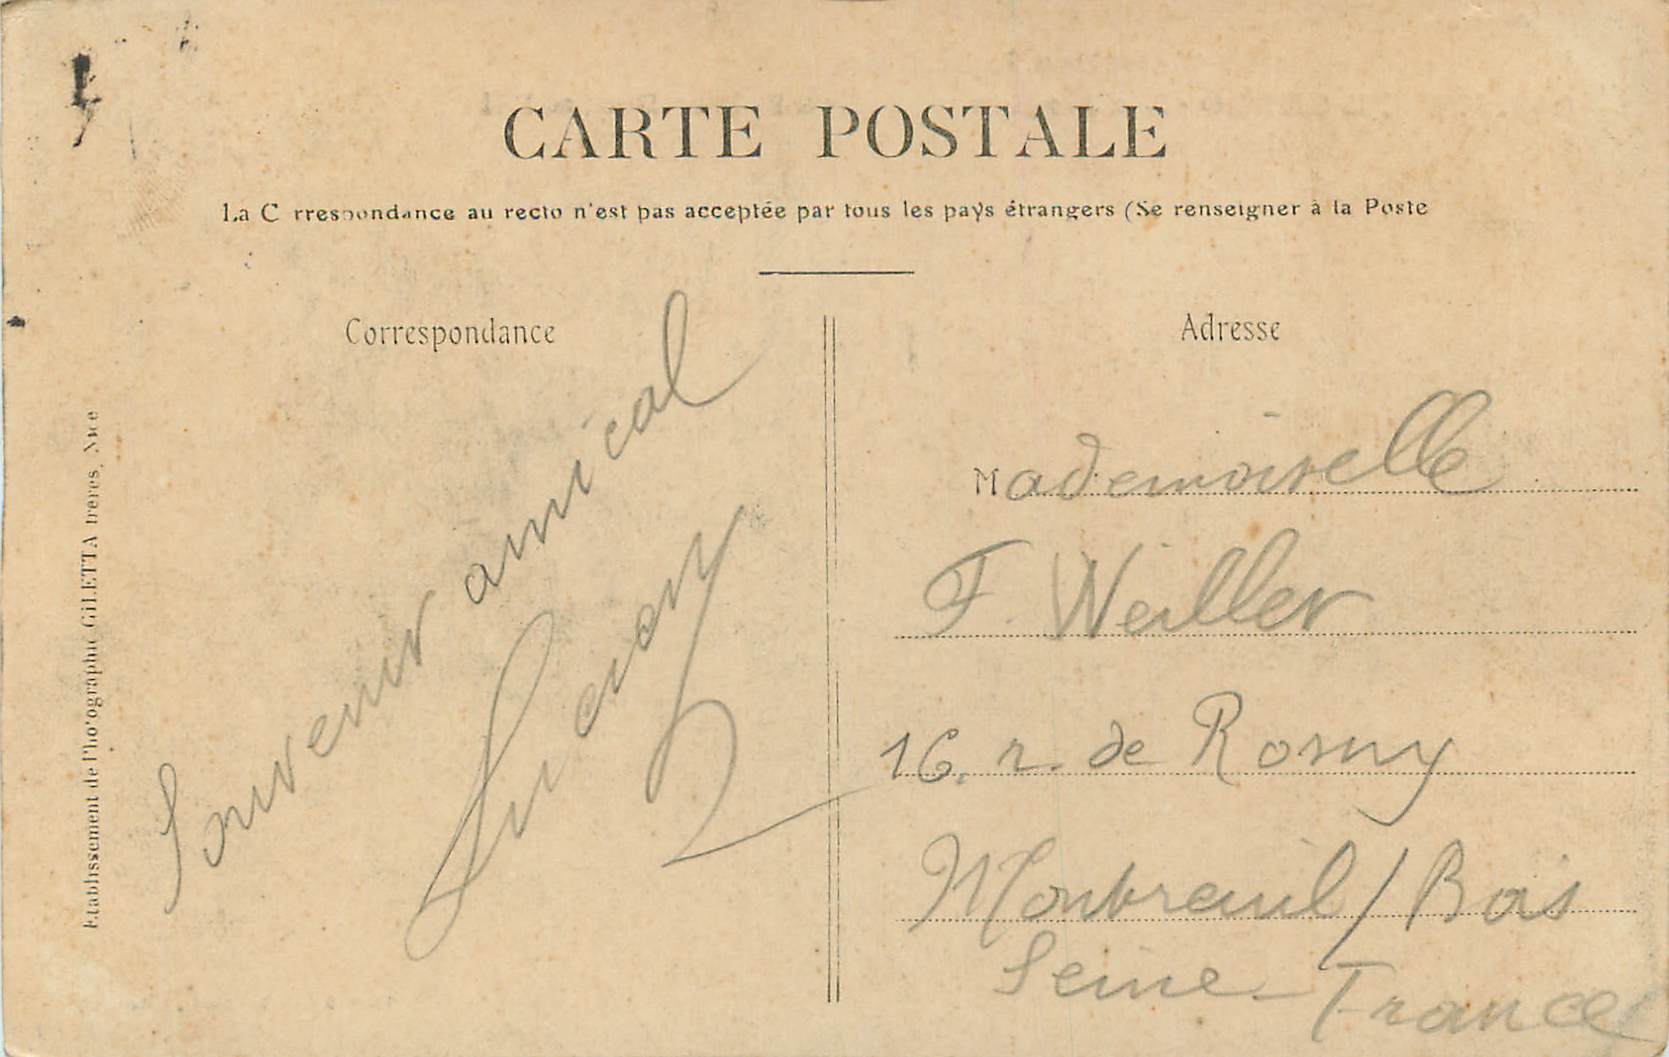 CARTE POSTALE
La C rrespondance au recto n'est pas acceptée par tous les pays étrangers (Se renseigner à la Poste
Correspondance
Souvenir amical
Adresse
Mademoiselle
F. Weiller
16. r. de Rosny
Montreuil/Bois
Seine - France
Etablissement de Photographie GILETTA frères, Nice